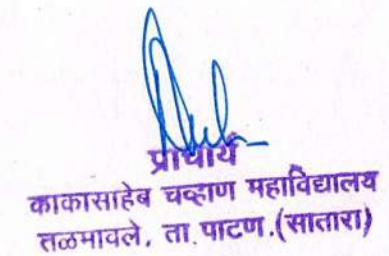 प्राचार्य
काकासाहेब चव्हाण महाविद्यालय
तळमावले, ता.पाटण.(सातारा)